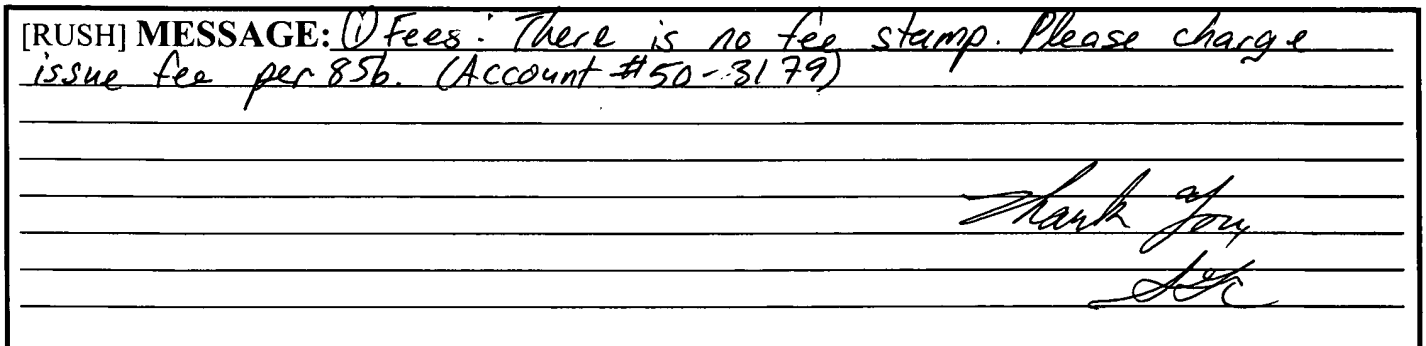 [RUSH] MESSAGE: ① Fees: There is no fee stamp. Please charge
issue fee per 85b. (Account #50-3179)
Thank you,